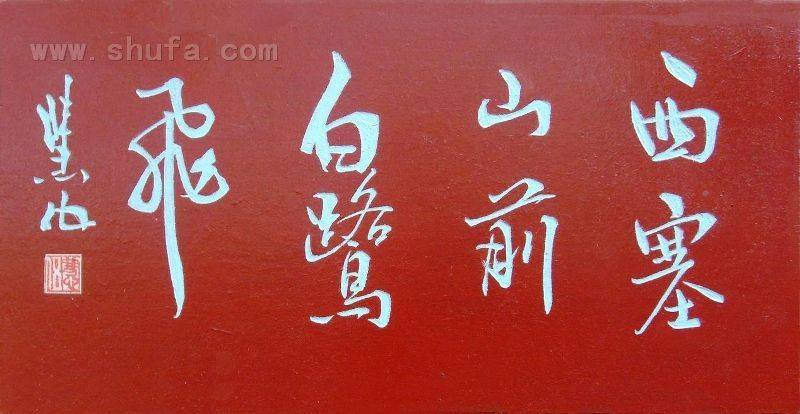 www.shufa.com
西塞
山前
白鹭
飞